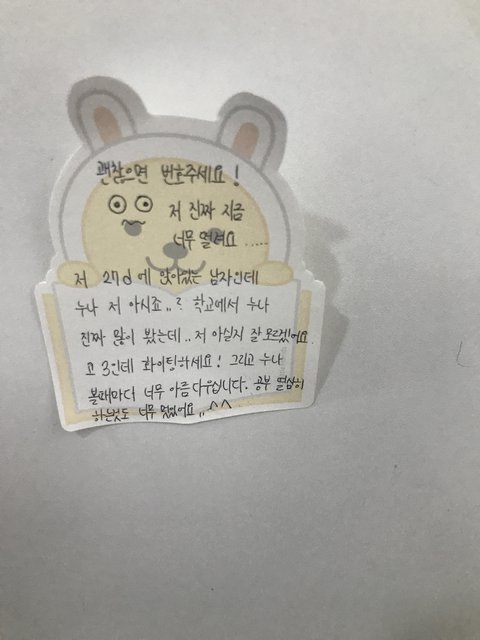 괜찮으면 번호주세요!
저 진짜 지금
너무 떨려요 .....
저 27d 에 앉아있는 남자인데
누나 저 아시죠..? 학교에서 누나
진짜 많이 봤는데.. 저 아실지 잘 모르겠어요
고 3인데 화이팅하세요! 그리고 누나
볼때마다 너무 아름다우십니다. 공부 열심히
하는것도 너무 멋있어요.. ^^